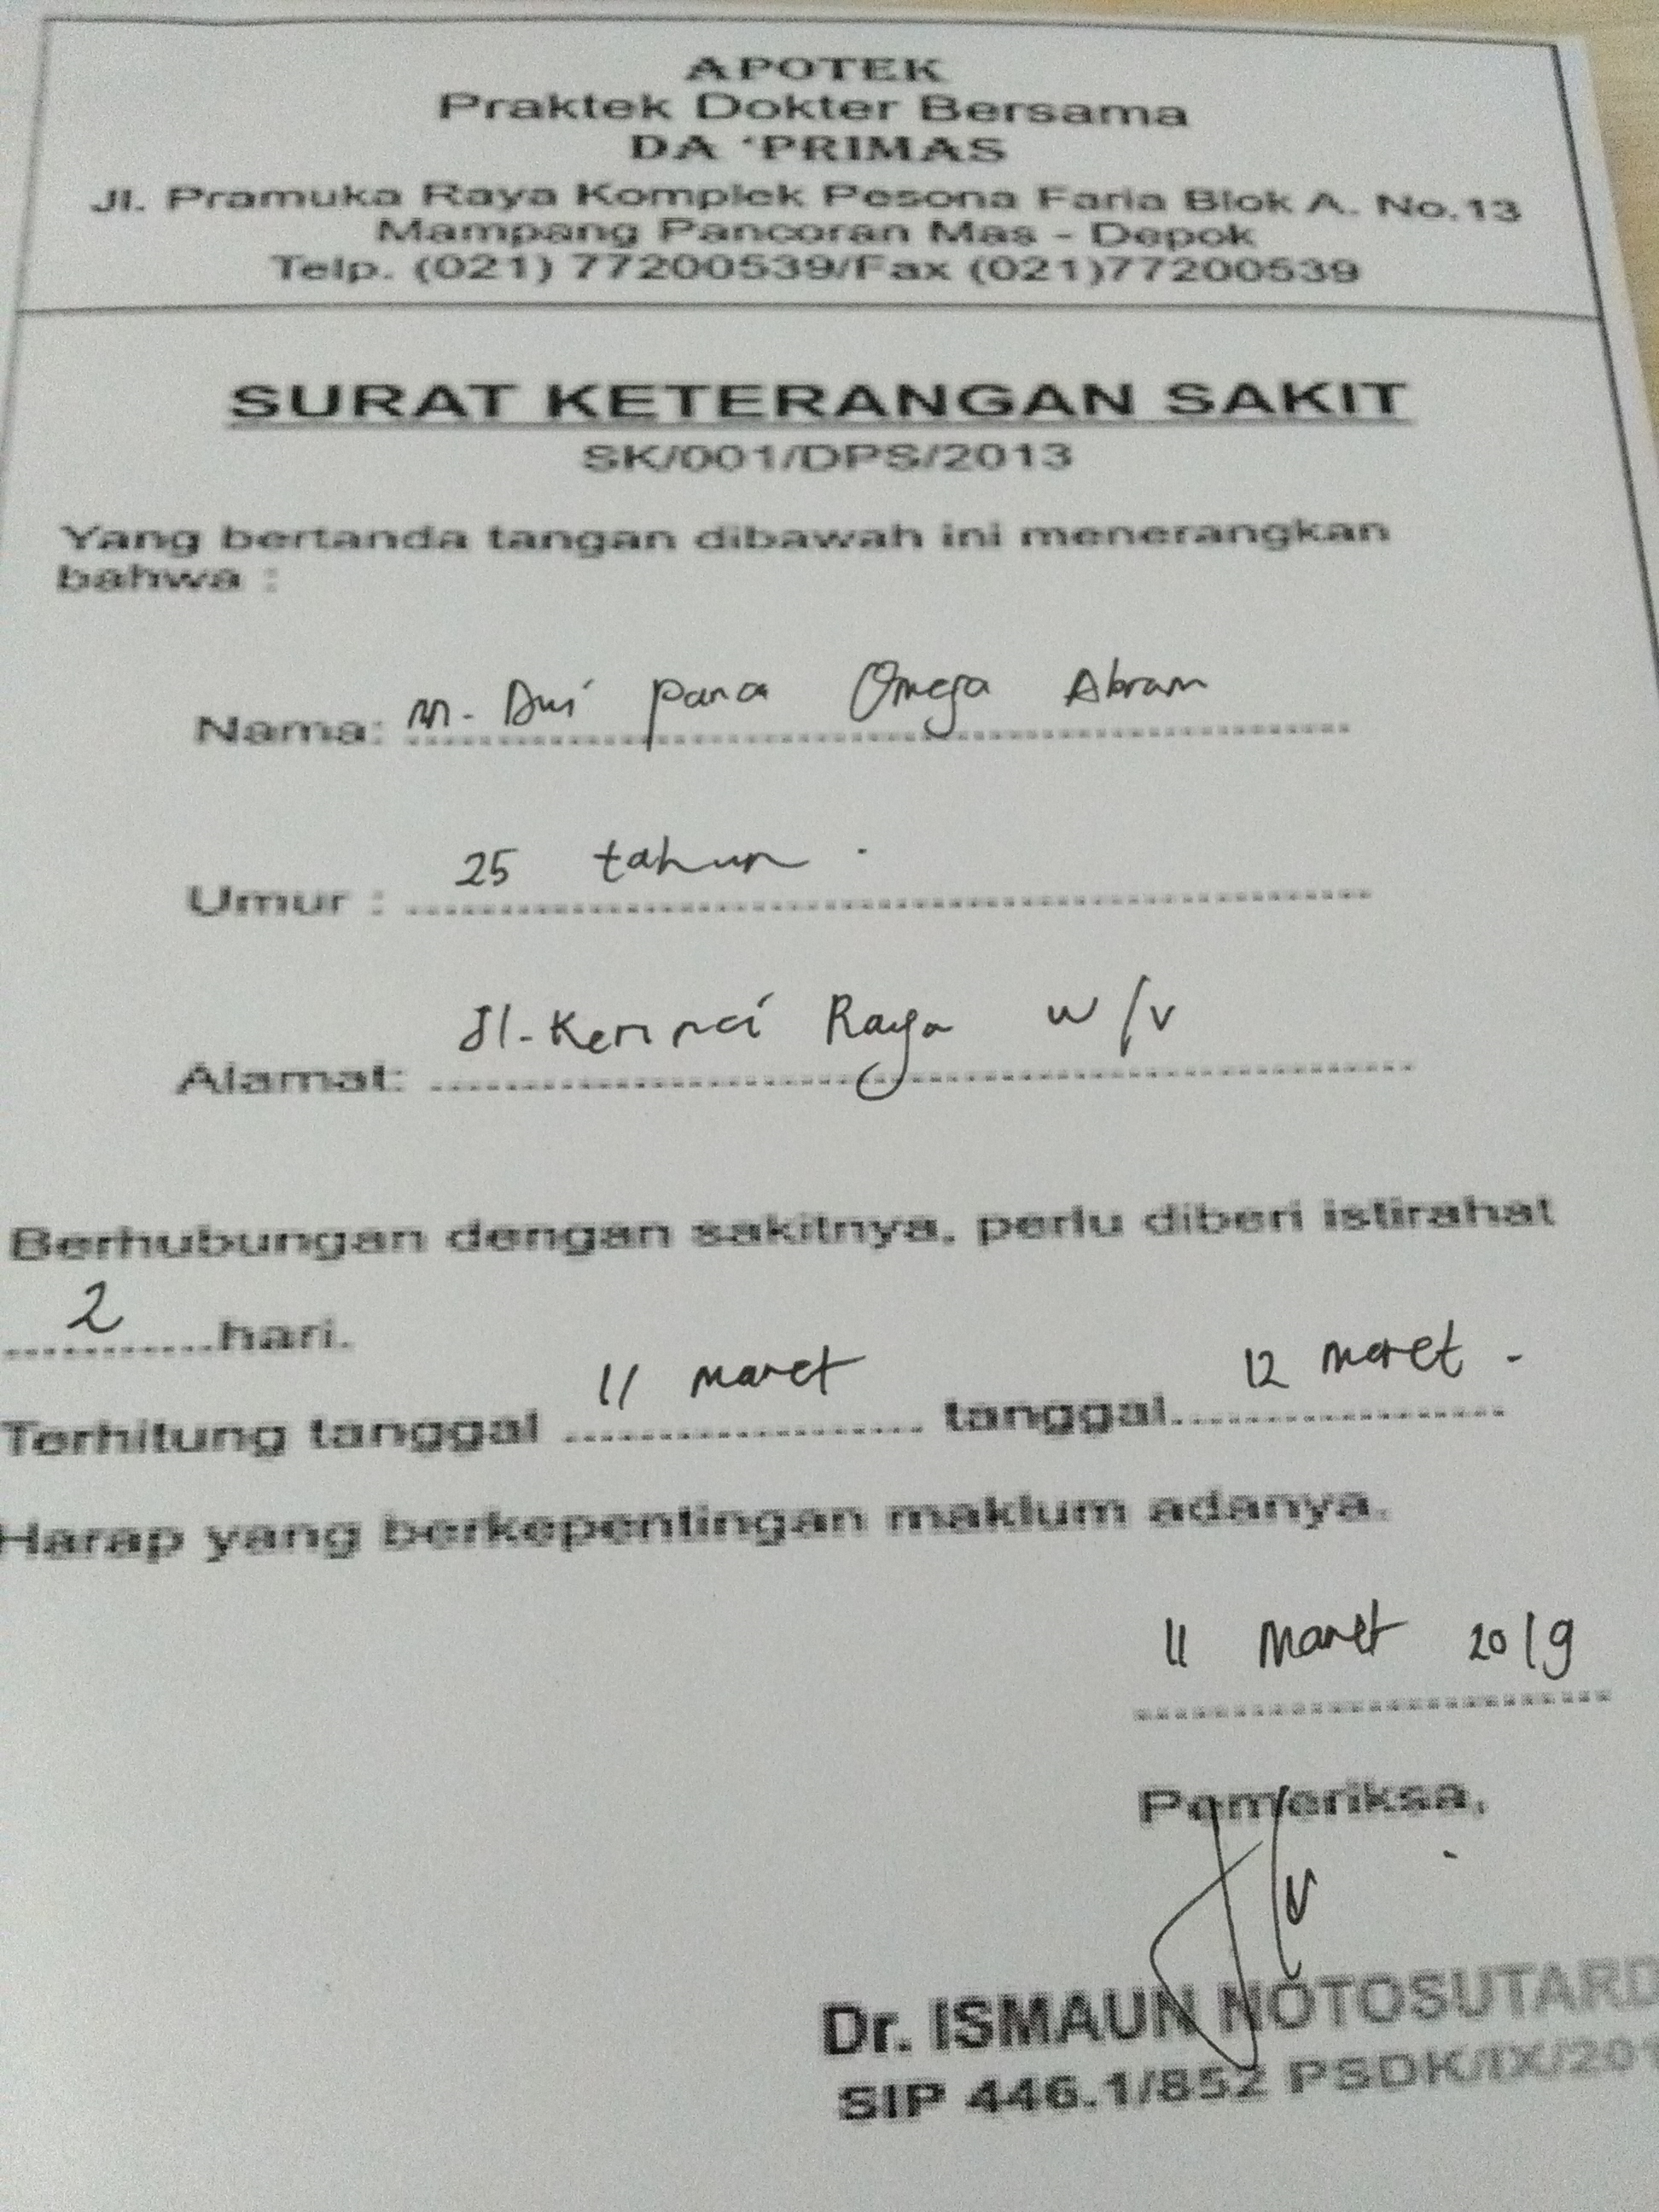 APOTEK
Praktek Dokter Bersama
DA 'PRIMAS
Jl. Pramuka Raya Komplek Pesona Faria Blok A. No.13
Mampang Pancoran Mas - Depok
Telp. (021) 77200539/Fax (021)77200539
SURAT KETERANGAN SAKIT
SK/001/DPS/2013
Yang bertanda tangan dibawah ini menerangkan
bahwa :
Nama: M. Dwi pana Omega Abram
Umur : 25 tahun.
Alamat: Jl. Kerinci Raya
Berhubungan dengan sakitnya, perlu diberi istirahat
2 hari.
Terhitung tanggal 11 maret tanggal 12 maret -
Harap yang berkepentingan maklum adanya.
11 Maret 2019
Pemeriksa,
Dr. ISMAUN NOTOSUTARD
SIP 446.1/852 PSDK/IX/201